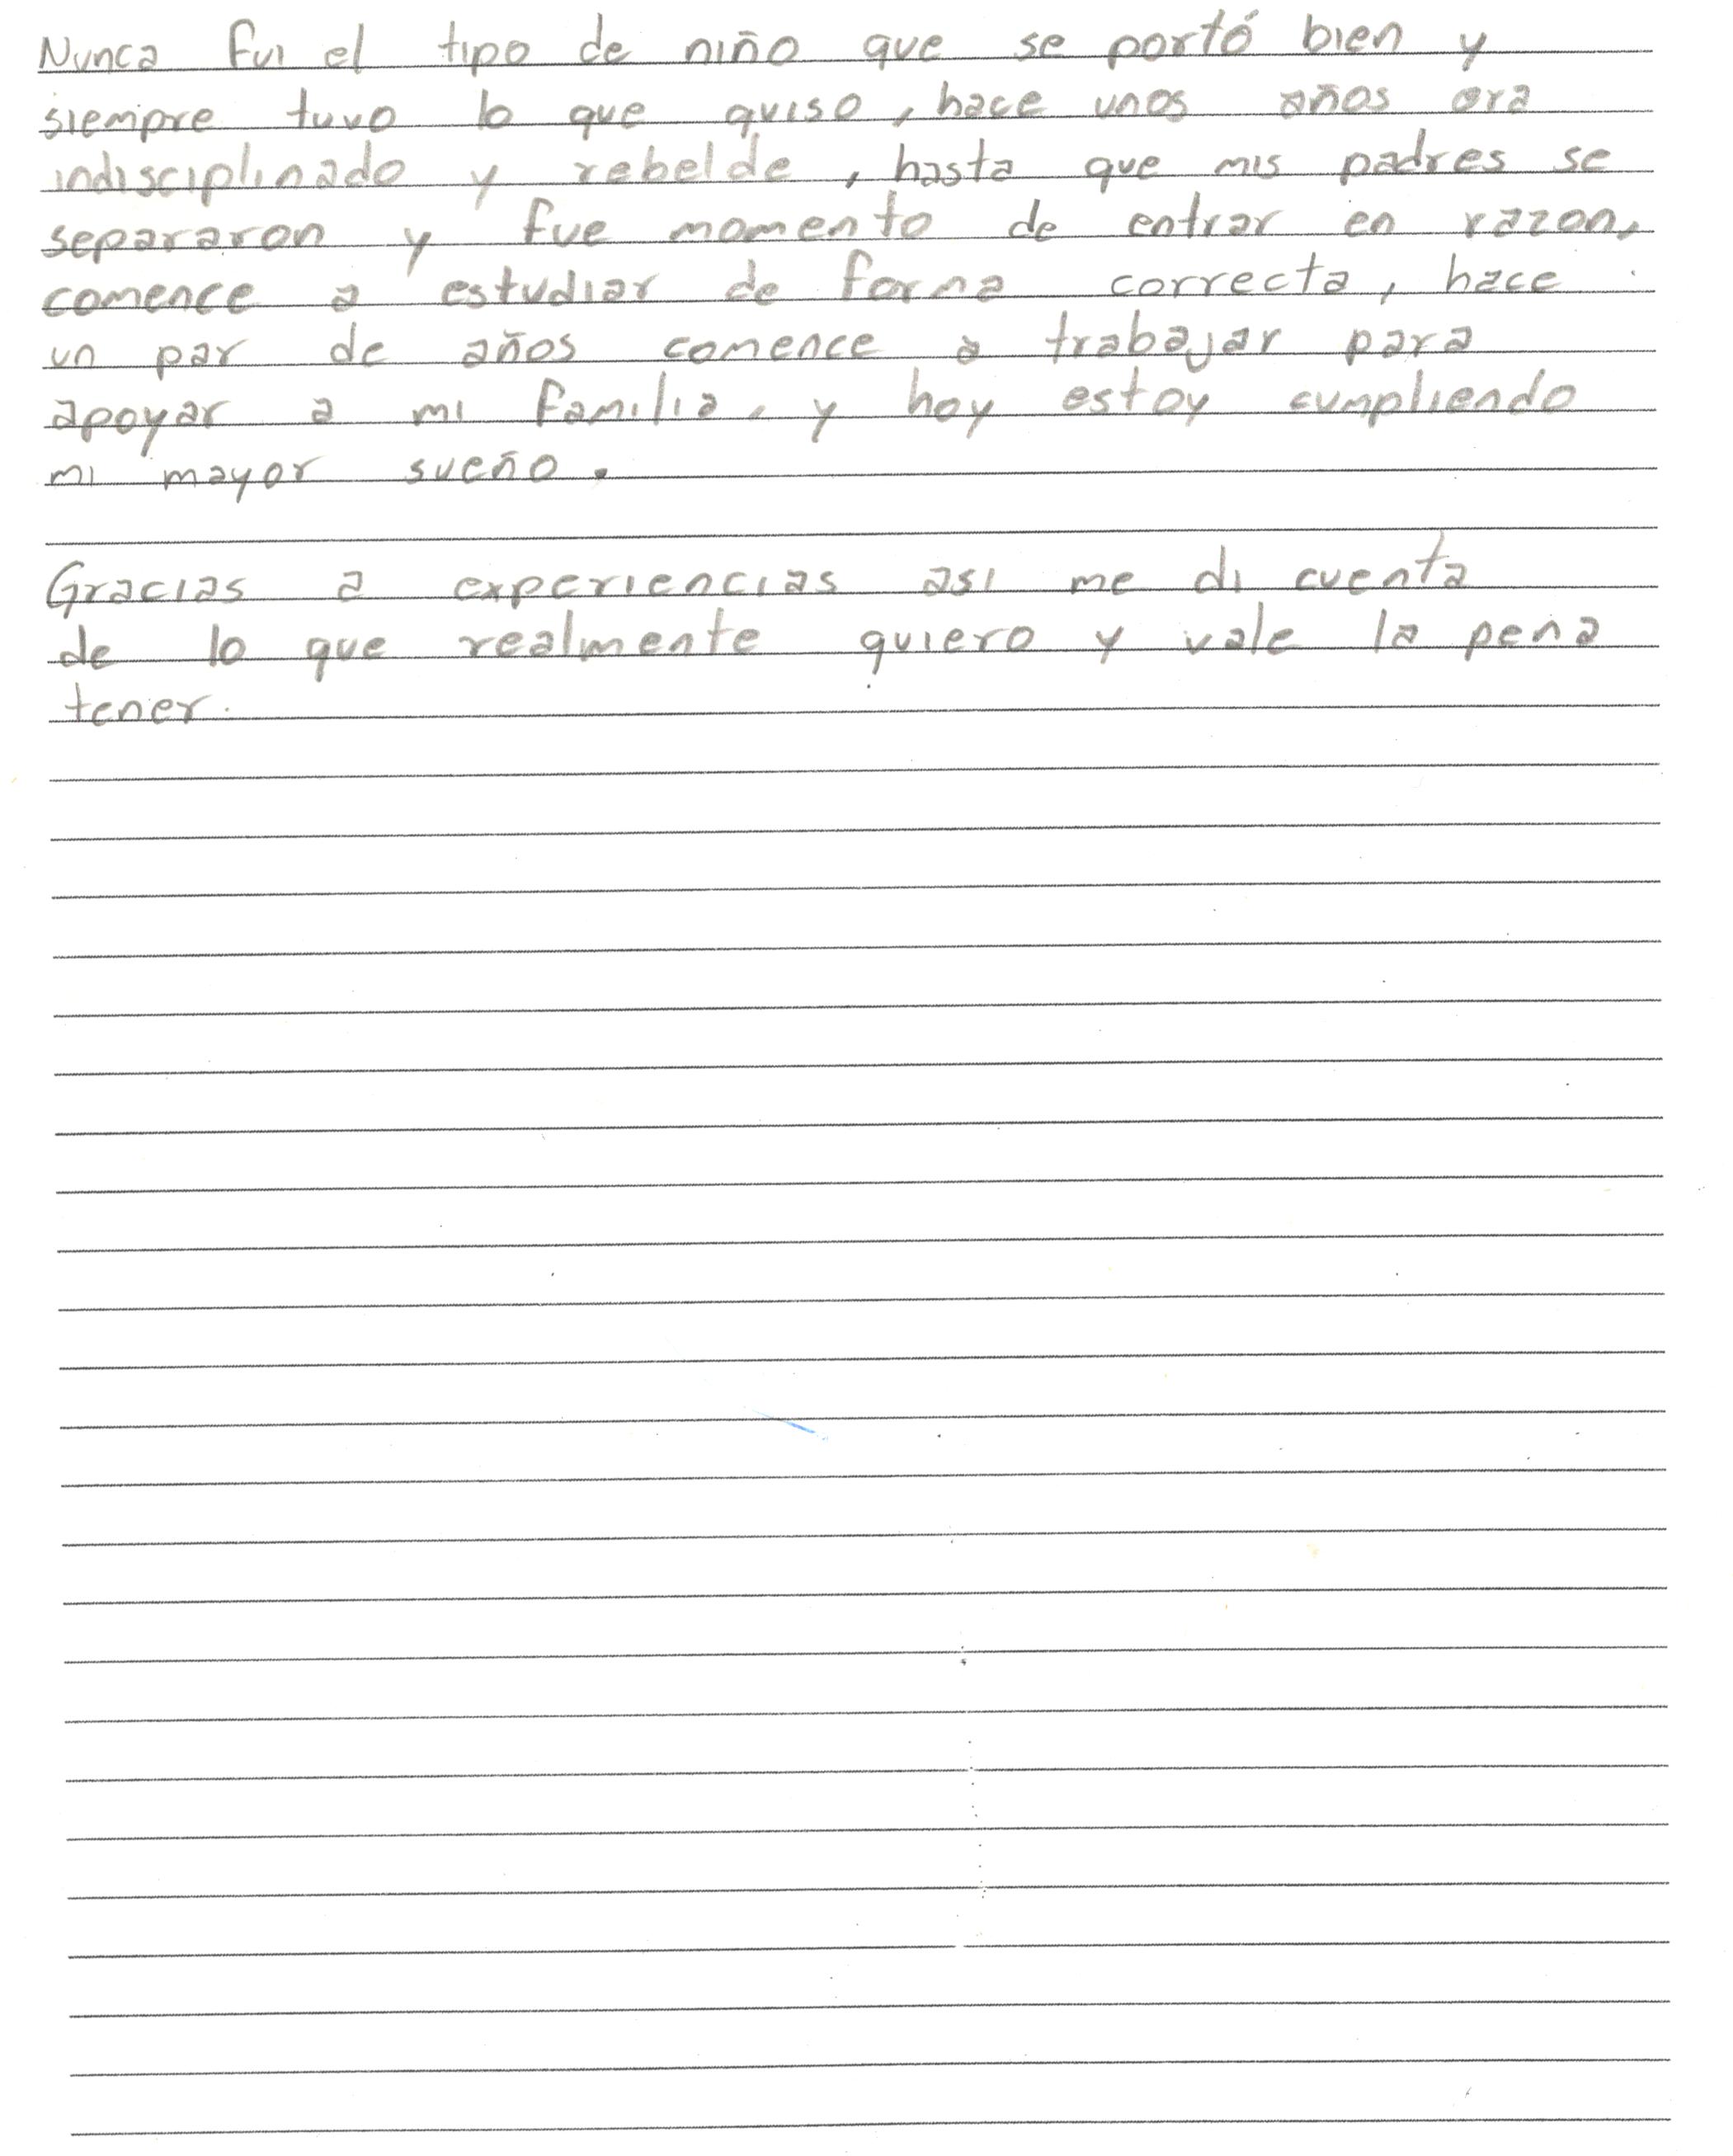 Nunca fui el tipo de niño que se portó bien y
siempre tuvo lo que quiso, hace unos años era
indisciplinado y rebelde, hasta que mis padres se
separaron y fue momento de entrar en razon,
comence a estudiar de forma correcta, hace
un par de años comence a trabajar para
apoyar a mi familia, y hoy estoy cumpliendo
mi mayor sueño.
Gracias a experiencias asi me di cuenta
de lo que realmente quiero y vale la pena
tener.